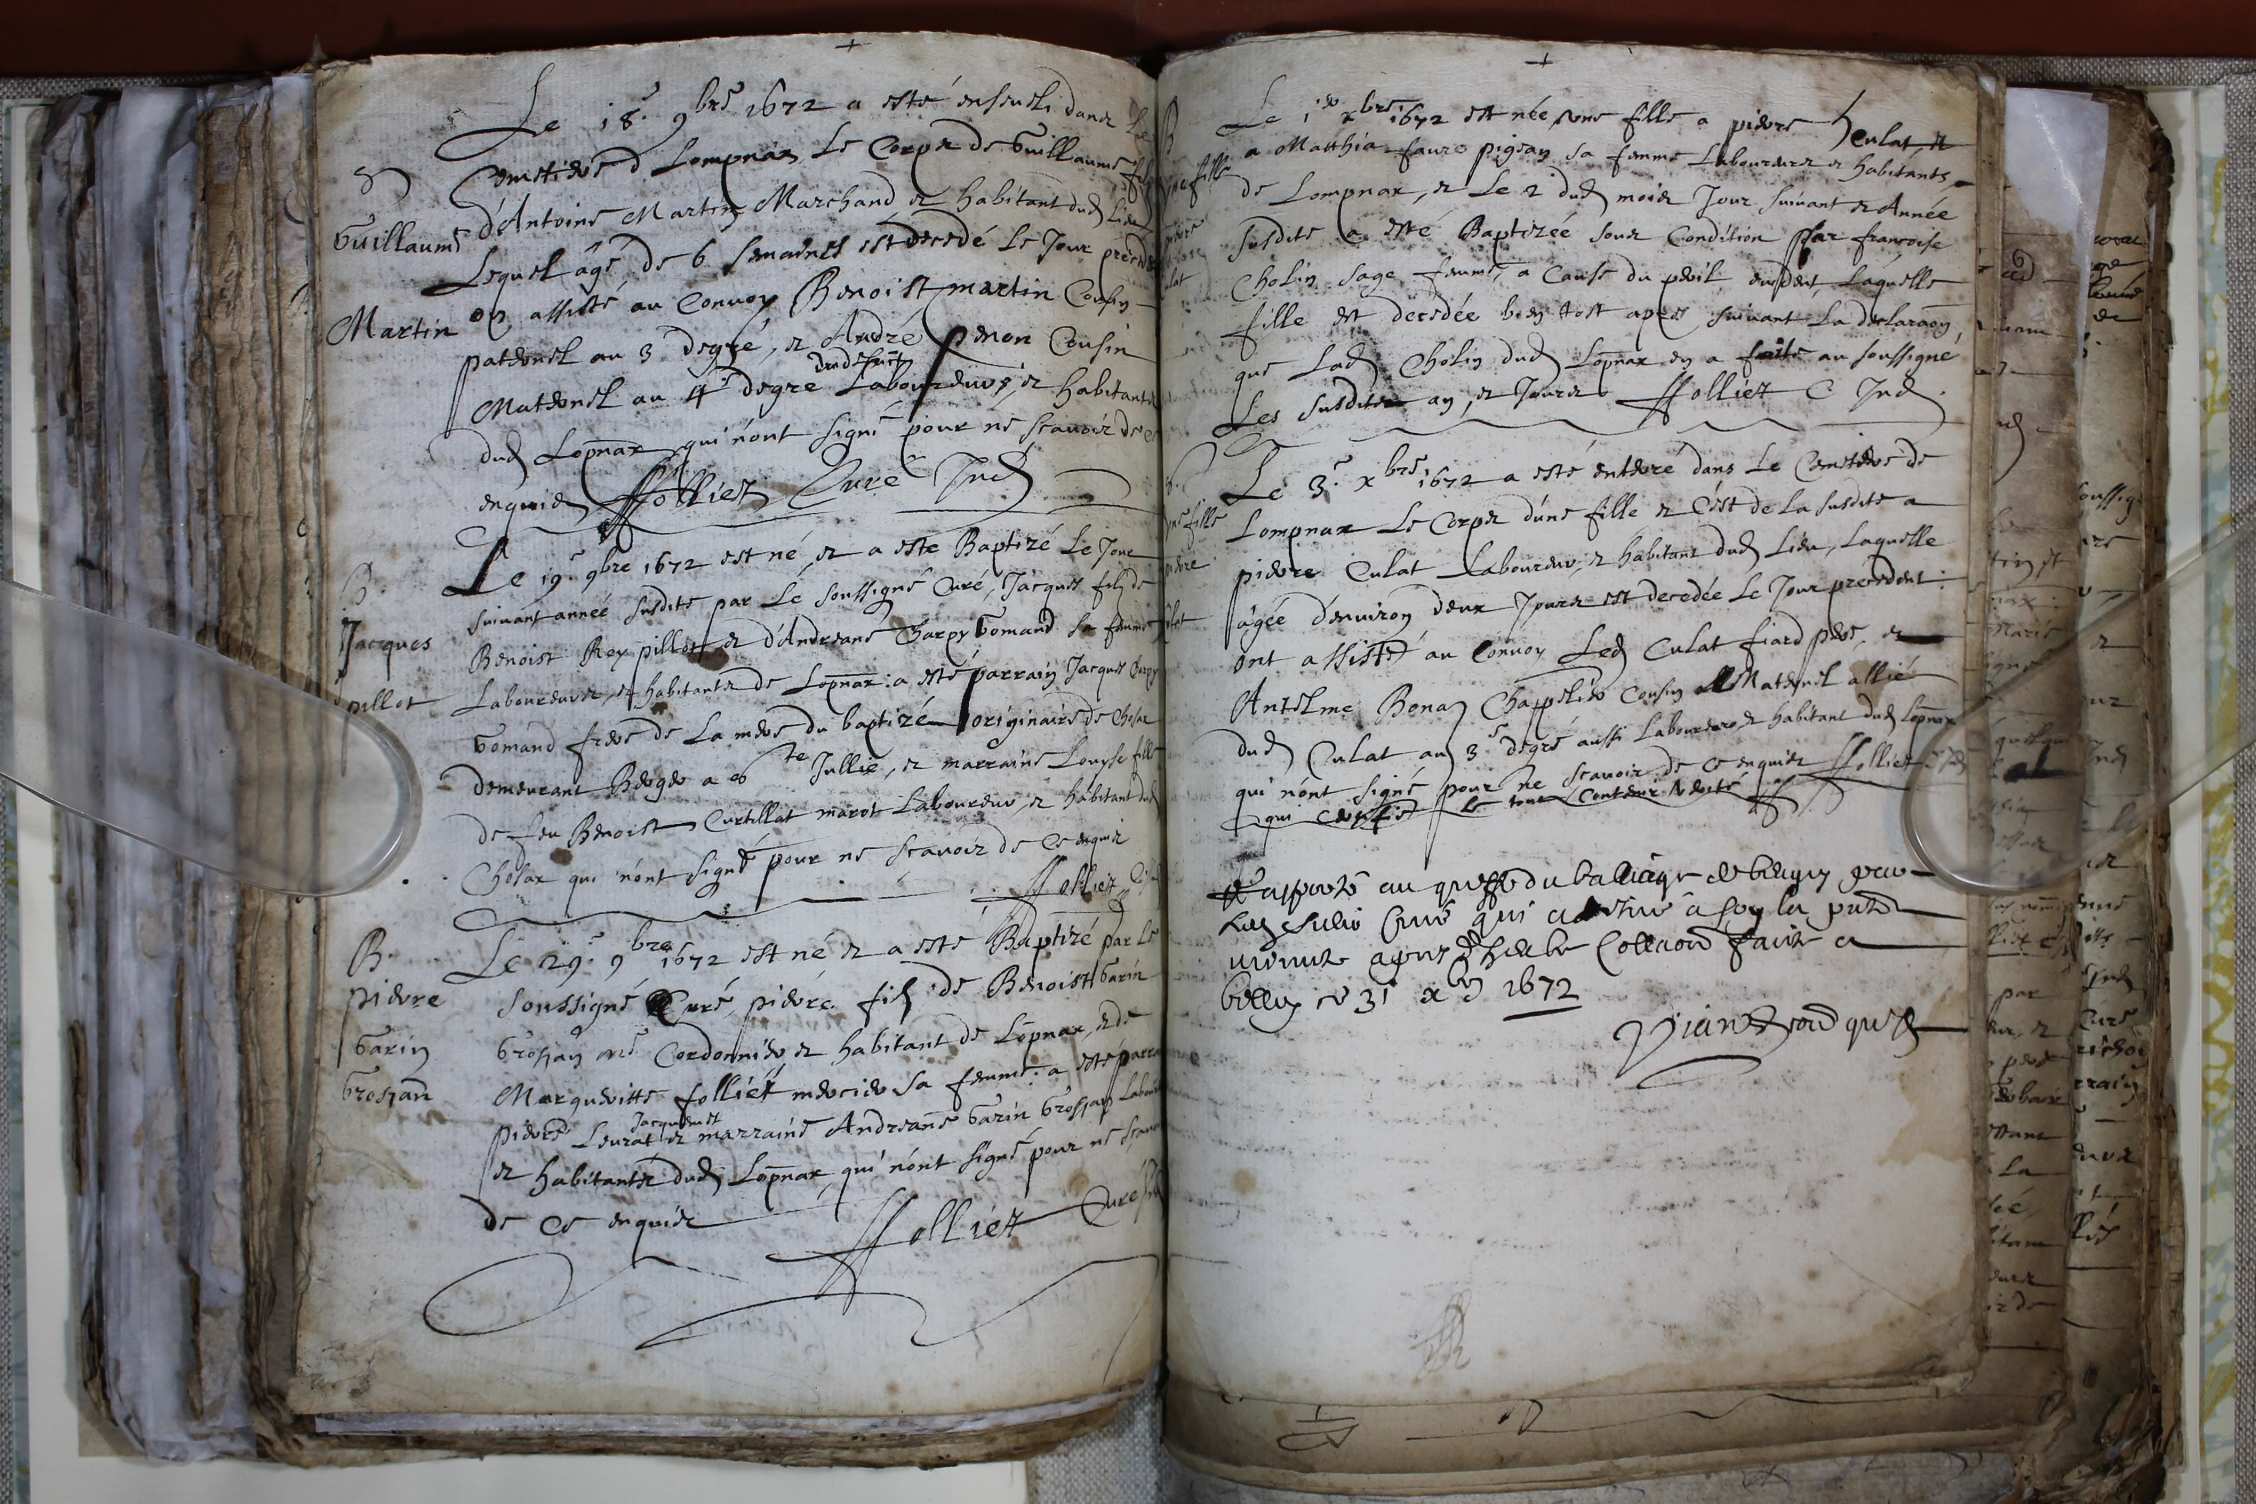 Le 18e 9bre 1672 a esté enseveli dans le
Cemetiere d Lompnax Le Corps de Guillaume fils
d'Antoine Martin Marchand et habitant dud lieu
Lequel âgé de 6 semaines est decedé Le Jour preced
on assisté au Convoy Benoist martin Cousin
paternel au 3 degré, et André penon Cousin
Maternel au 4e degre Laboureurs, et habitants
dud Lopnax qui n'ont signé pour ne scavoir de ce
enquis ffolliet Curé Ind
Guillaume
Martin
Le 19e 9bre 1672 est né, et a este Baptizé Le Jour
suivant année susdite par Le soussigné Curé, Jacques fils de
Benoist Rey pillot et d'Andreane Charpy Gomand sa femme
Laboureurs, et habitants de Lopnax: a esté parrain Jacques Charpy
Gomand frere de La mere du baptizé originaire de Chosax
demeurant Berger a ste Jullie, et marraine Louyse fille
de feu Benoist Curtillat marot Laboureur, et habitant dud
Chosax qui n'ont signé pour ne scavoir de ce enquis
ffolliet
B.
Jacques
pillot
Le 29e 9bre 1672 est né et a esté Baptizé par Le
soussigné Curé, pierre fils de Benoist Garin
Grosjan me Cordonnier et habitant de Lopnax, et de
Margueritte folliet mercier sa femme: a esté parra
Jacquemet
pierre Leurat et marraine Andreane Garin Grosjan Labour
et habitants dud Lopnax, qui n'ont signé pour ne scavoir
de ce enquis
ffolliet Curé Ind
B.
pierre
Garin
Grosjan
Le 1er xbre 1672 est née une fille a pierre Culat et
a Matthia faure pigean sa femme Laboureurs et habitants
de Lompnax, et Le 2 dud mois Jour suivant et Année
susdite a esté Baptizée sous Condition par françoise
Cholin sage femme, a Cause du peril evident, Laquelle
fille est decedée bien tost apres, suivant La declaraon
que Lad Cholin dud Lopnax en a faite au soussigné
Les susdits an, et Jours ffolliet C Ind
Le 3e xbre 1672 a esté enterré dans Le Cemetiere de
Lompnax Le Corps d'une fille et C'est de La susdite a
pierre Culat Laboureur, et habitant dud Lieu, Laquelle
âgée d'environ deux Jours est decedée Le Jour precedent:
ont assisté au Convoy Led Culat fiard pere, et
Antelme Bonaz Chappelier Cousin Maternel allié
dud Culat au 3e degré aussi Laboureurs, et habitant dud Lopnax
qui n'ont signé pour ne scavoir de ce enquis ffolliet C Ind
qui certifie Le tout Contenir verité
apporté au greffe du balliage de beugey par
led sieur Curé qui a retiré a soy la
minute apres deheube Collaon faite a
belley ce 31 xbre 1672